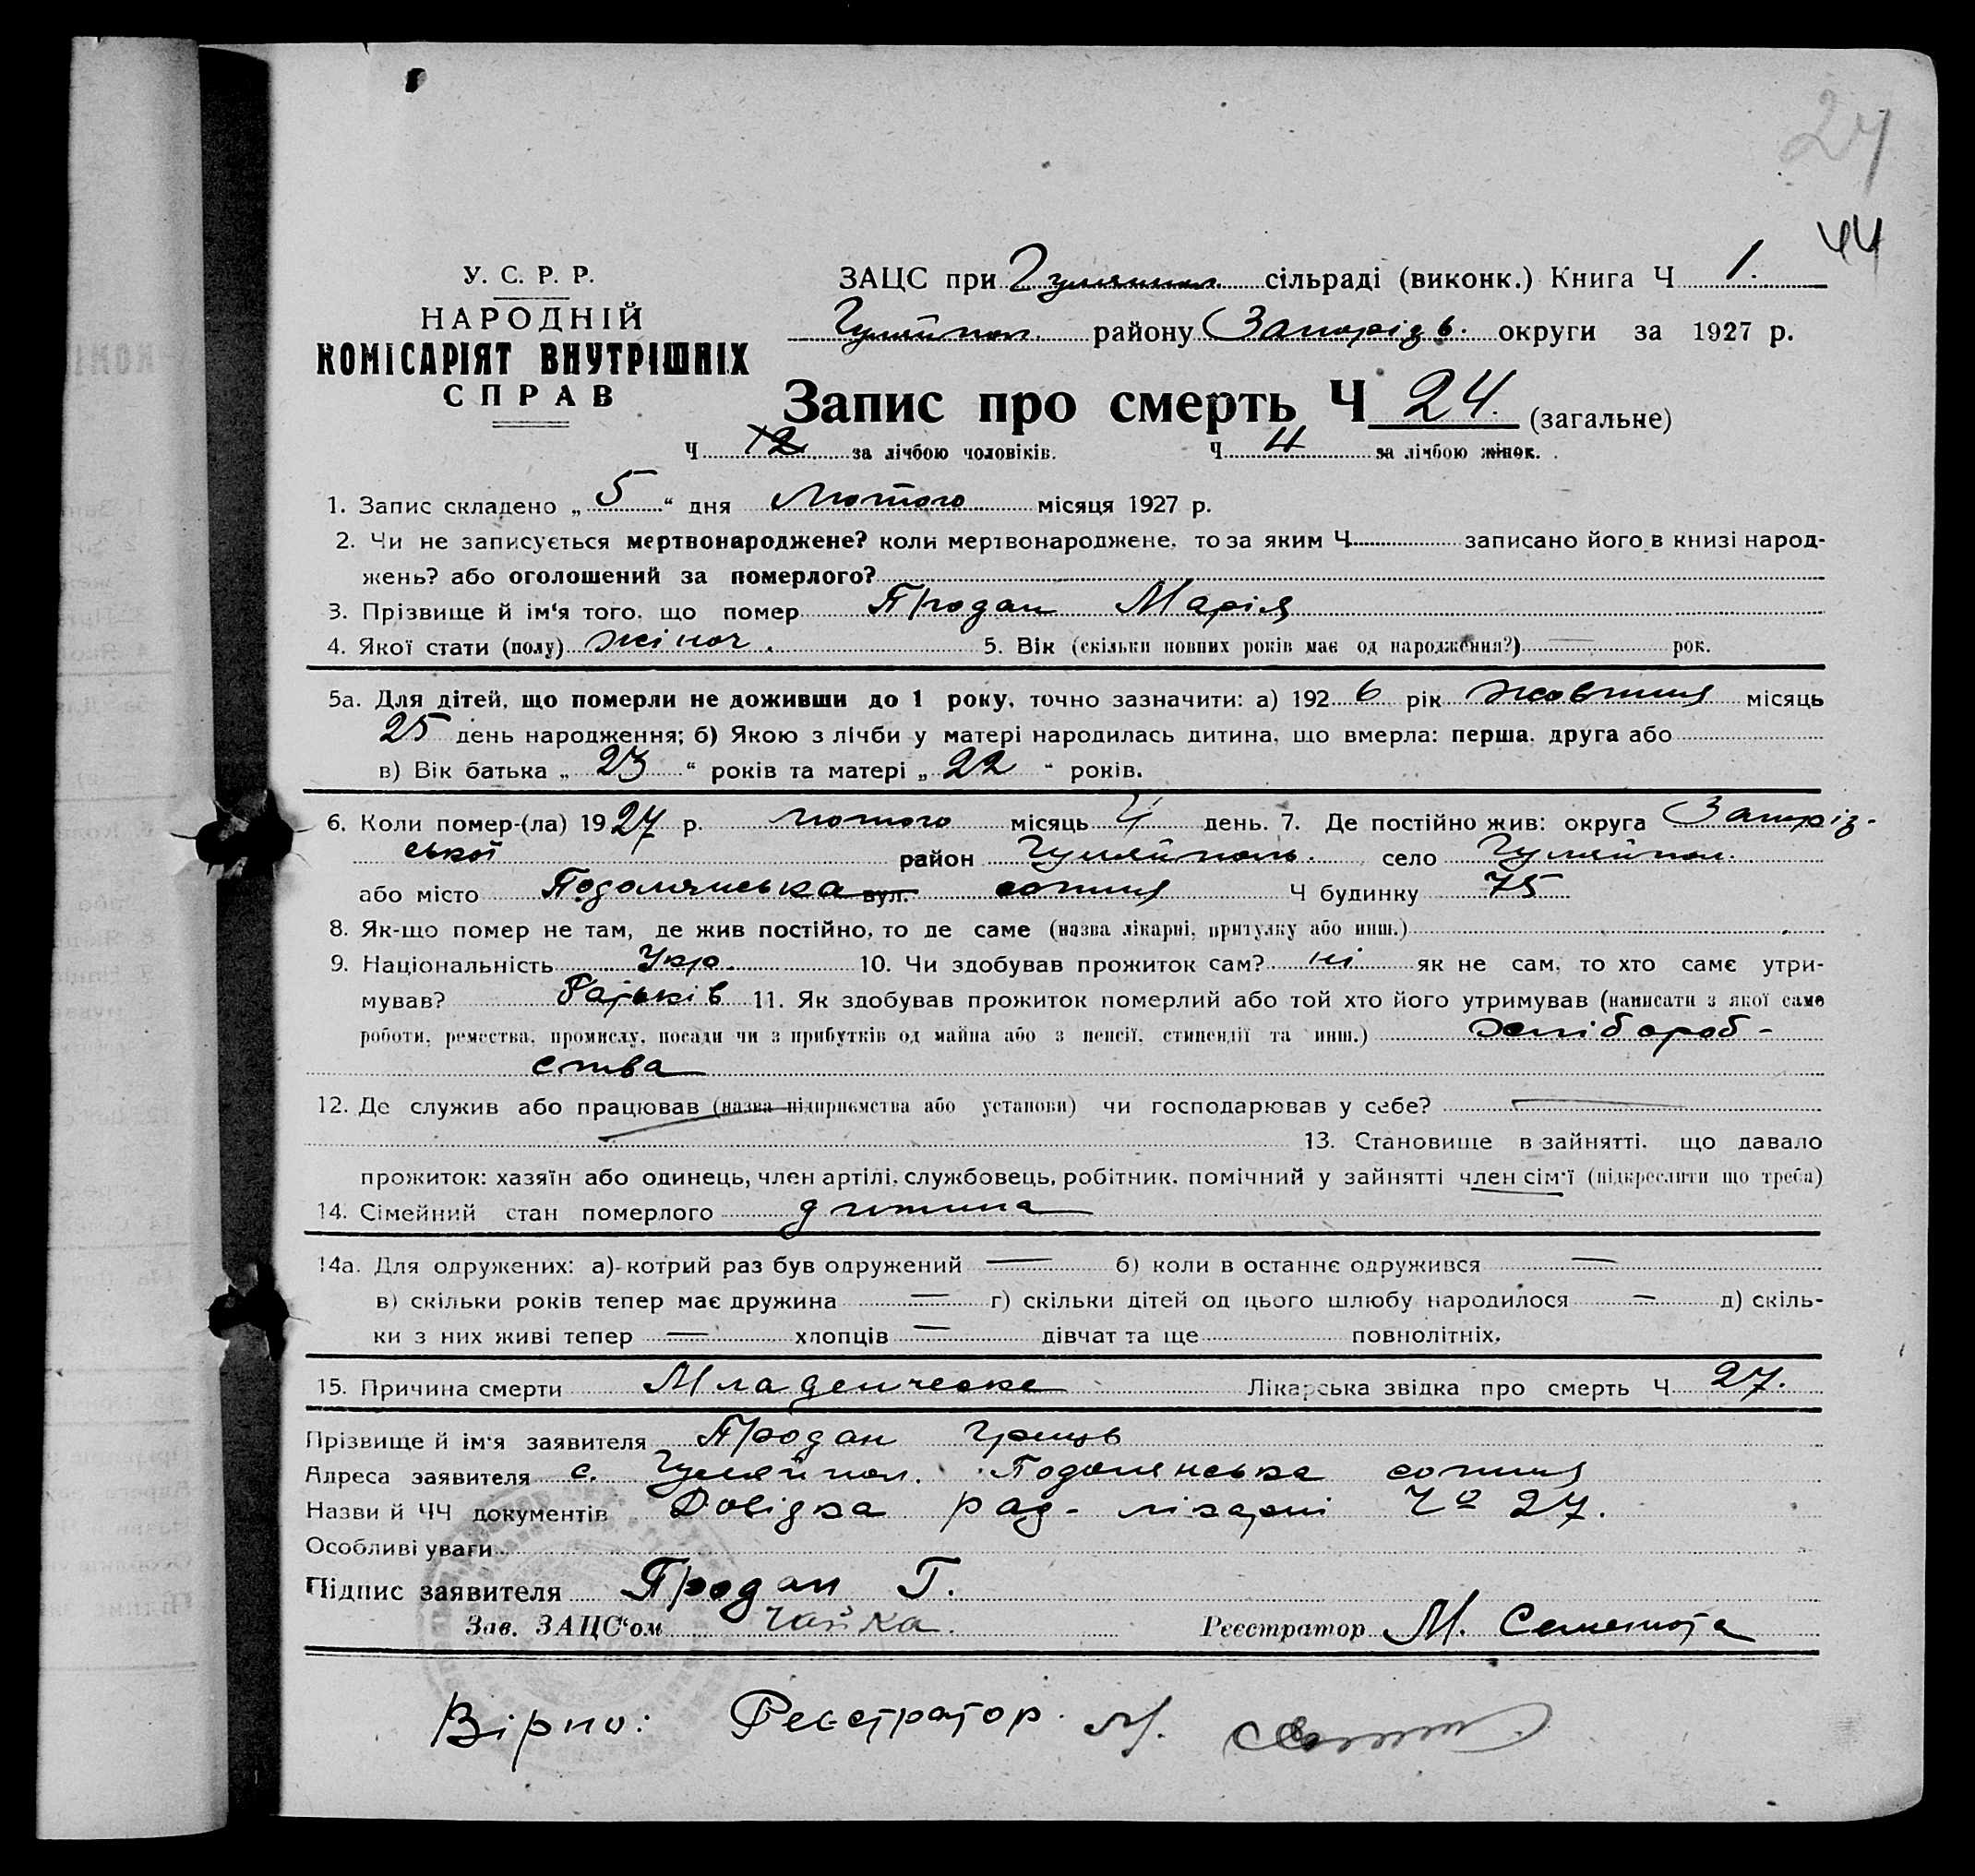 24
44
У. С. Р. Р.
НАРОДНІЙ
КОМІСАРІЯТ ВНУТРІШНІХ
СПРАВ
ЗАЦС при Гуляйпол. сільраді (виконк.) Книга Ч 1.
Гуляйпол. району Запорізь. округи за 1927 р.
Запис про смерть Ч 24. (загальне)
Ч 12 за лічбою чоловіків. Ч 4 за лічбою жінок.
1. Запис складено „ 5 “ дня Лютого місяця 1927 р.
2. Чи не записується мертвонароджене? коли мертвонароджене, то за яким Ч записано його в книзі народ-
жень? або оголошений за померлого?
3. Прізвище й ім‘я того, що помер Продан Марія
4. Якої стати (полу) жіноч. 5. Вік (скільки повних років має од народження?) — рок.
5а. Для дітей, що померли не доживши до 1 року, точно зазначити: а) 192 6 рік жовтня місяць
25 день народження; б) Якою з лічби у матері народилась дитина, що вмерла: перша, друга або
в) Вік батька „ 23 “ років та матері „ 22 “ років.
6. Коли помер-(ла) 19 27 р. лютого місяць 4 день. 7. Де постійно жив: округа Запоріз-
ської район Гуляйполь. село Гуляйпол.
або місто Подолянська вул. сотня Ч будинку 75
8. Як-що помер не там, де жив постійно, то де саме (назва лікарні, притулку або инш.)
9. Національність Укр. 10. Чи здобував прожиток сам? ні як не сам, то хто саме утри-
мував? Батьків 11. Як здобував прожиток померлий або той хто його утримував (написати з якої саме
роботи, ремества, промислу, посади чи з прибутків од майна або з пенсії, стипендії та инш.) хліброб-
ства
12. Де служив або працював (назва підприємства або установи) чи господарював у себе? —
13. Становище в зайнятті, що давало
прожиток: хазяїн або одинець, член артілі, службовець, робітник, помічний у зайнятті член сім‘ї (підкреслити що треба)
14. Сімейний стан померлого дитина
14а. Для одружених: а)-котрий раз був одружений — б) коли в останнє одружився —
в) скільки років тепер має дружина — г) скільки дітей од цього шлюбу народилося — д) скіль-
ки з них живі тепер — хлопців — дівчат та ще повнолітніх.
15. Причина смерти Младенческе Лікарська звідка про смерть Ч 27.
Прізвище й ім‘я заявителя Продан Гриць
Адреса заявителя с. Гуляйпол. Подолянська сотня
Назви й ЧЧ документів Довідка рад- лікарні Чо 27.
Особливі уваги
Підпис заявителя Продан Г.
Зав. ЗАЦС‘ом Чайка. Реєстратор М. Семенюта
Вірно: Реєстратор. М.